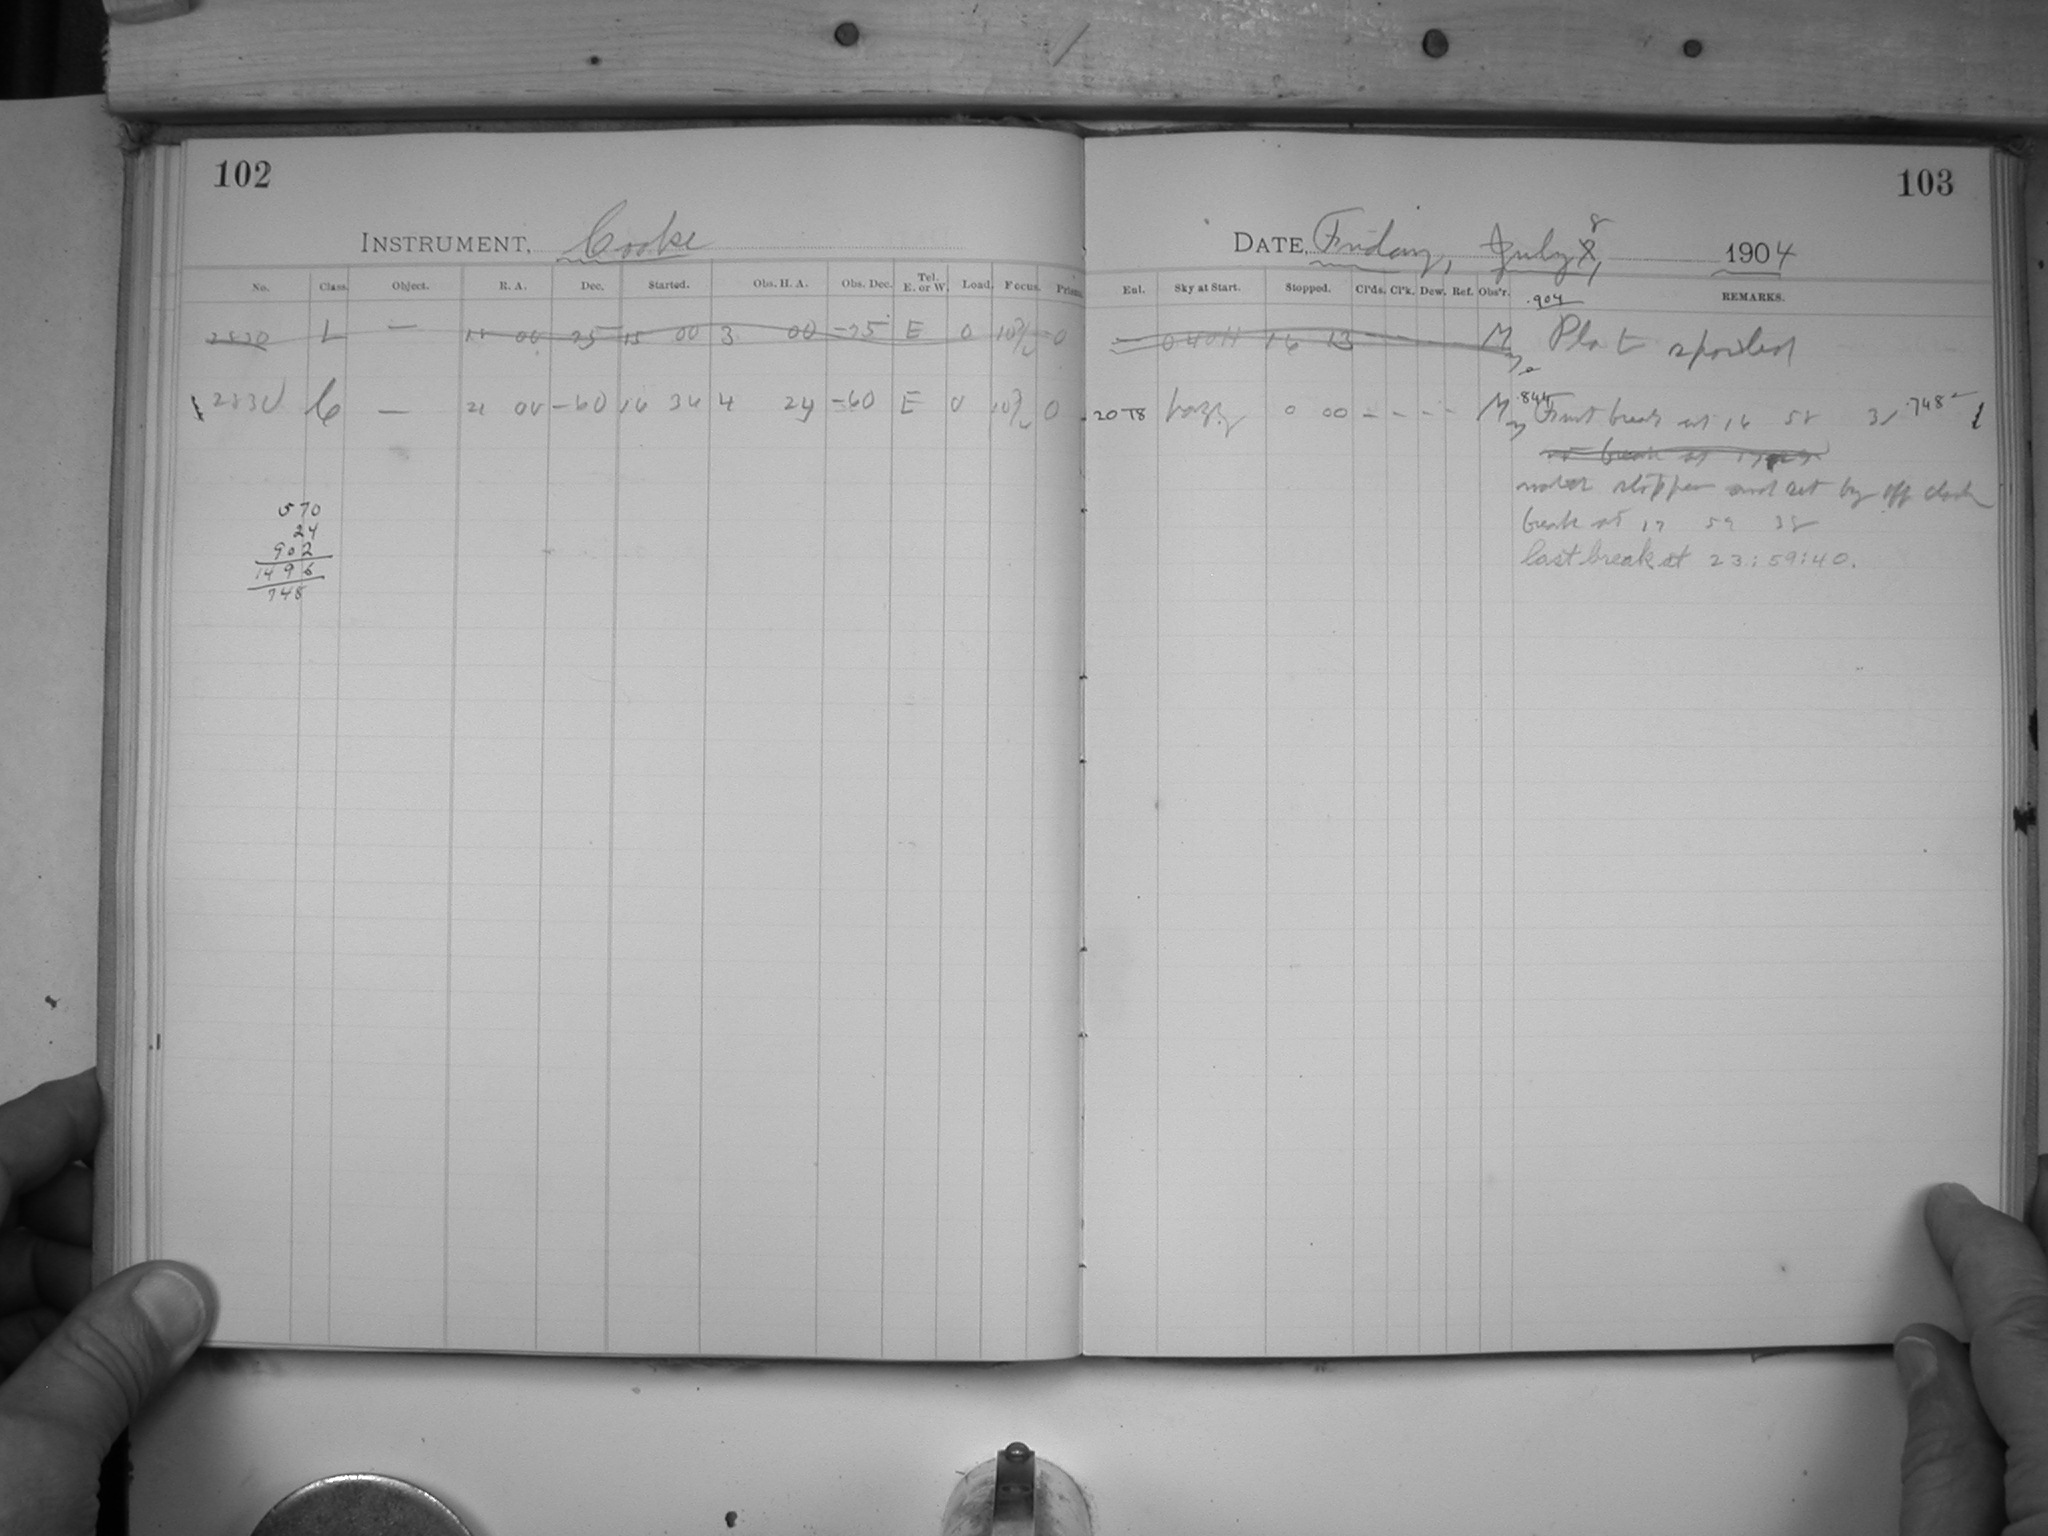 102
INSTRUMENT, Cooke
No. Class. Object. R. A. Dec. Started. Obs. H. A. Obs. Dec. Tel. E. or W. Load. Focus. Prism.
2830 L — 00 25 15 00 3 00 -25 E 0 0
2830 C — 21 00 -60 16 34 4 24 -60 E 0 0
570
24
902
1496
748
103
DATE, Friday, July 8, 1904
Enl. Sky at Start. Stopped. Cl'ds. Cl'k. Dew. Ref. Obs'r. .904 REMARKS.
— 16 13 M Plate spoiled
20 T8 hazy 0 00 - - - - M .844 First break at 16 58 .748
break at
motor stopped and set by off clock
break at 17 59 38
last break at 23:59:40.